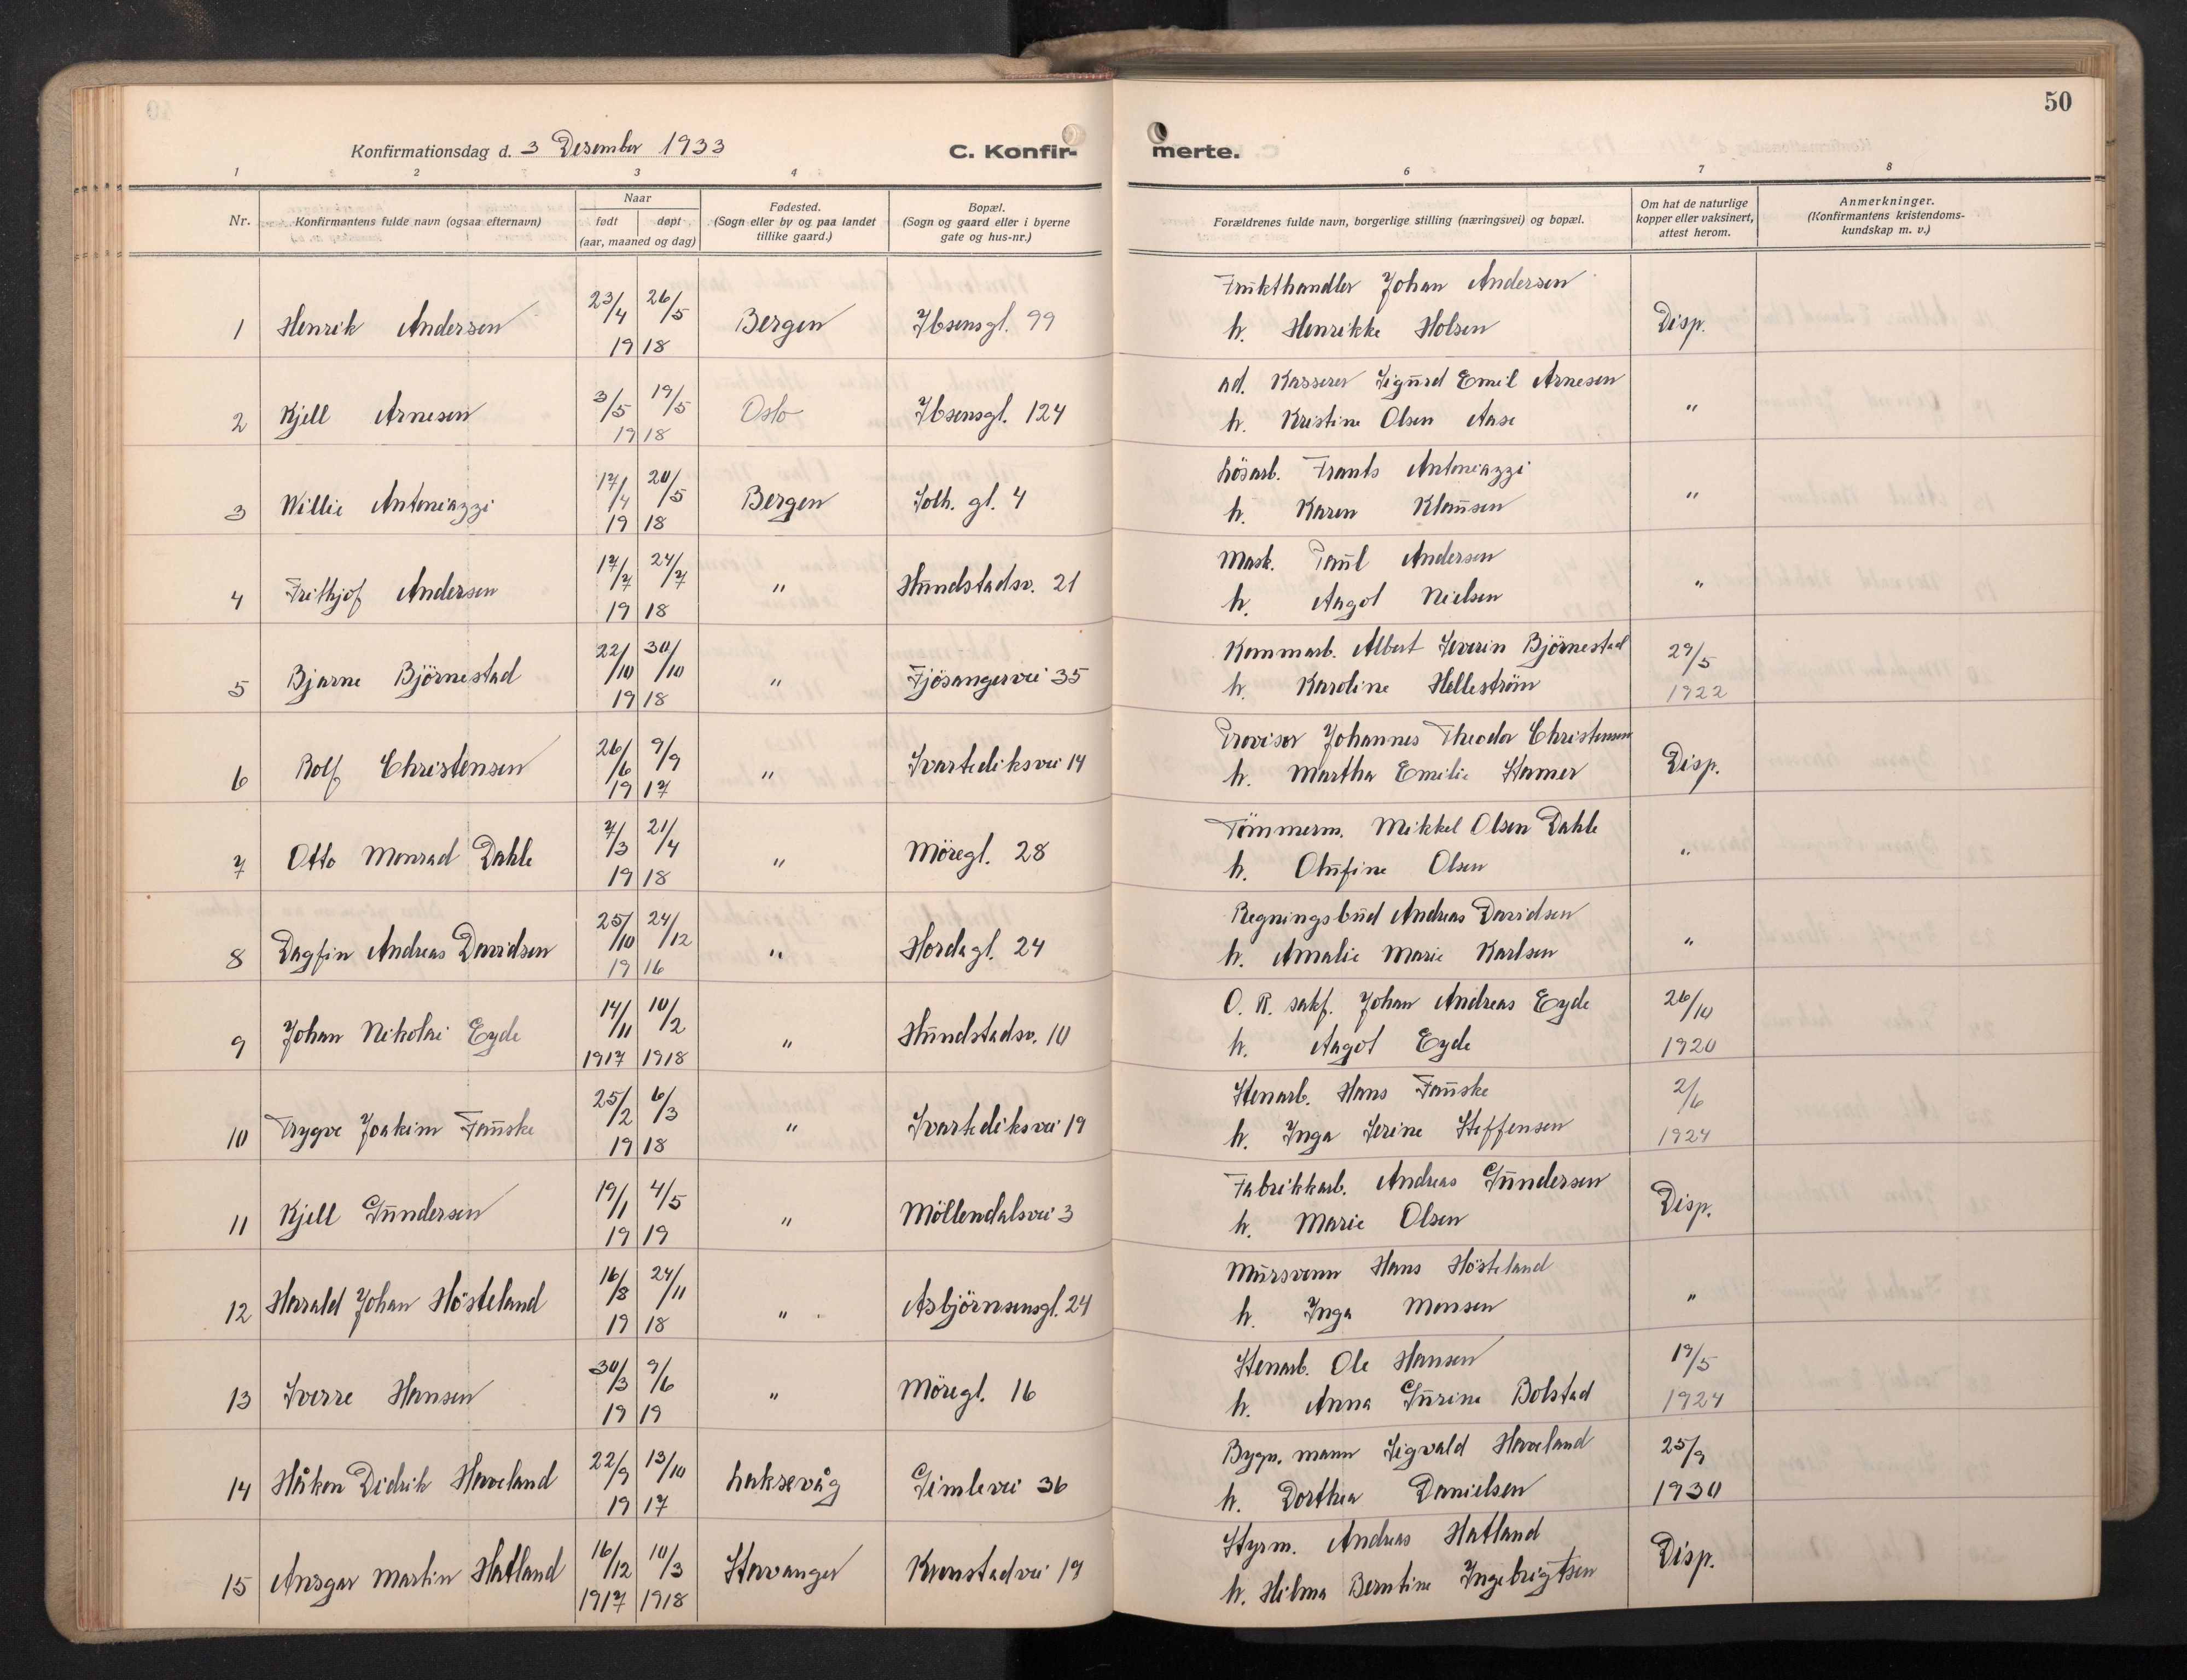 50
Konfirmationsdag d. 3 Desember 1933
C. Konfir-
merte.
1 2 3 4 6 7 8
Nr.
Konfirmantens fulde navn (ogsaa efternavn)
Naar
født døpt
(aar, maaned og dag)
Fødested.
(Sogn eller by og paa landet
tillike gaard.)
Bopæl.
(Sogn og gaard eller i byerne
gate og hus-nr.)
Forældrenes fulde navn, borgerlige stilling (næringsvei) og bopæl.
Om hat de naturlige
kopper eller vaksinert,
attest herom.
Anmerkninger.
(Konfirmantens kristendoms-
kundskap m. v.)
Frukthandler Johan Andersen
1 Henrik Andersen 23/4 26/5 Bergen Ibsensgt. 99 h. Henrikke Holsen Disp.
19 18
ad. Kasserer Sigurd Emil Arnesen
2 Kjell Arnesen 3/5 19/5 Oslo Ibsensgt. 124 h. Kristine Olsen Aase "
19 18
Løsarb. Frants Antoniazzi
3 Willie Antoniazzi 17/4 20/5 Bergen Solh. gt. 4 h. Karen Klausen "
19 18
Mask. Paul Andersen
4 Frithjof Andersen 17/7 24/7 " Hunstadsv. 21 h. Aagot Nielsen "
19 18
Kommarb. Albert Severin Björnestad 29/5
5 Bjarne Björnestad 22/10 30/10 " Fjösangervei 35 h. Karoline Helleström 1922
19 18
Provisor Johannes Theodor Christensen
6 Rolf Christensen 26/6 9/9 " Svartediksvei 14 h. Martha Emilie Hamer Disp.
19 17
Tömmerm. Mikkel Olsen Dahle
7 Otto Monrad Dahle 7/3 21/4 " Möregt. 28 h. Olufine Olsen "
19 18
Regningsbud Andreas Davidsen
8 Dagfin Andreas Davidsen 25/10 24/12 " Hordagt. 24 h. Amalie Marie Karlsen "
19 16
O. R. sakf. Johan Andreas Eyde 26/10
9 Johan Nikolai Eyde 14/11 10/2 " Hundstadsv. 10 h. Aagot Eyde 1920
1917 1918
Stenarb. Hans Fauske 2/6
10 Trygve Joakim Fauske 25/2 6/3 " Svartediksvei 19 h. Inga Serine Steffensen 1924
19 18
Fabrikkarb. Andreas Gundersen
11 Kjell Gundersen 19/1 4/5 " Möllendalsvei 3 h. Marie Olsen Disp.
19 19
Mursvenn Hans Hösteland
12 Harald Johan Hösteland 16/8 24/11 " Asbjörnsensgt. 24 h. Inga Monsen "
19 18
Stenarb. Ole Hansen 19/5
13 Sverre Hansen 30/3 9/6 " Möregt. 16 h. Anna Gurine Bolstad 1924
19 19
Bygn. mann Sigvald Haveland 25/9
14 Håkon Didrik Haveland 22/9 13/10 Laksevåg Gimlevei 36 h. Dorthea Danielsen 1930
19 17
Styrm. Andreas Hatland
15 Ansgar Martin Hatland 16/12 10/3 Stavanger Kronstadvei 19 h. Hilma Berntine Ingebrigtsen Disp.
1917 1918